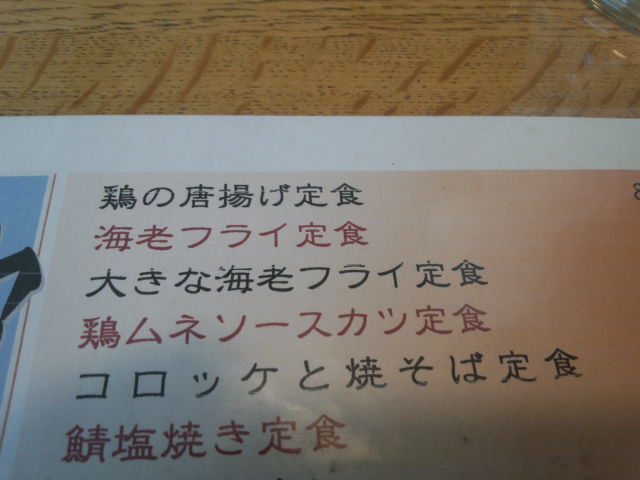 鶏の唐揚げ定食
海老フライ定食
大きな海老フライ定食
鶏ムネソースカツ定食
コロッケと焼そば定食
鯖塩焼き定食